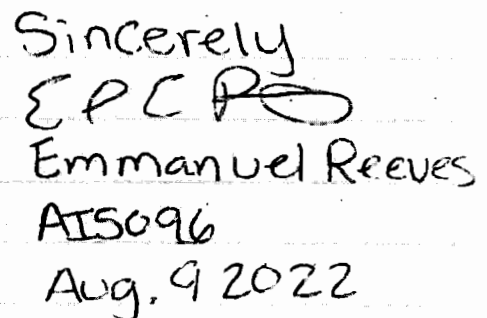 Sincerely
Emmanuel Reeves
AI5096
Aug. 9 2022